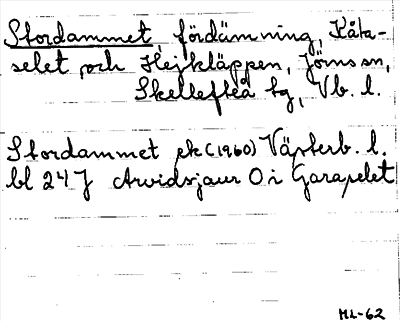 Stordammet, fördämning, Kåta-
selet och Hejkläppen, Jörns sn,
Skellefteå tg, Vb. l.
Stordammet ek (1960) Västerb. l.
bl 24 J Arvidsjaur O i Garaselet
ML-62